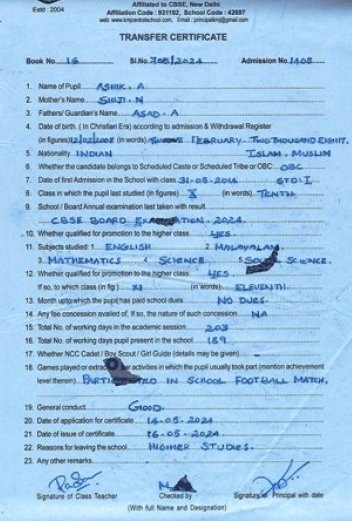 Estd : 2004
Affiliated to CBSE, New Delhi
Affiliation Code : 931102, School Code : 42697
TRANSFER CERTIFICATE
Book No. 16 Sl.No. 708/2024 Admission No. 1408
1. Name of Pupil ASHIK. A
2. Mother's Name SHIJI. N
3. Fathers/ Guardian's Name ASAD. A
4. Date of birth. ( In Christian Era) according to admission & Withdrawal Register
(in figures) 12/02/2008 (in words) TWELVE FEBRUARY. TWO THOUSAND EIGHT.
5. Nationality INDIAN ISLAM, MUSLIM
6. Whether the candidate belongs to Scheduled Caste or Scheduled Tribe or OBC OBC
7. Date of first Admission in the School with class 31-05- STD: I
8. Class in which the pupil last studied (in figures) X (in words) TENTH
9. School / Board Annual examination last taken with result
CBSE BOARD 2024
10. Whether qualified for promotion to the higher class YES
11. Subjects studied 1. ENGLISH 2. MALAYALAM
3. MATHEMATICS 4. SCIENCE 5. SOCIAL SCIENCE.
12. Whether qualified for promotion to the higher class YES
If so, to which class (in fig) XI (in words) ELEVENTH
13. Month upto which the pupil has paid school dues NO DUES.
14. Any fee concession availed of, If so, the nature of such concession NA
15. Total No. of working days in the academic session 203
16. Total No. of working days pupil present in the school 189
17. Whether NCC Cadet / Boy Scout / Girl Guide (details may be given)
18. Games played or extra activities in which the pupil usually took part (mention achievement
level therein) PARTICIPATED IN SCHOOL FOOTBALL MATCH.
19. General conduct GOOD
20. Date of application for certificate 14-05-2024
21. Date of issue of certificate 16-05-2024
22. Reasons for leaving the school HIGHER STUDIES.
23. Any other remarks
Signature of Class Teacher Checked by Signature of Principal with date
(With full Name and Designation)